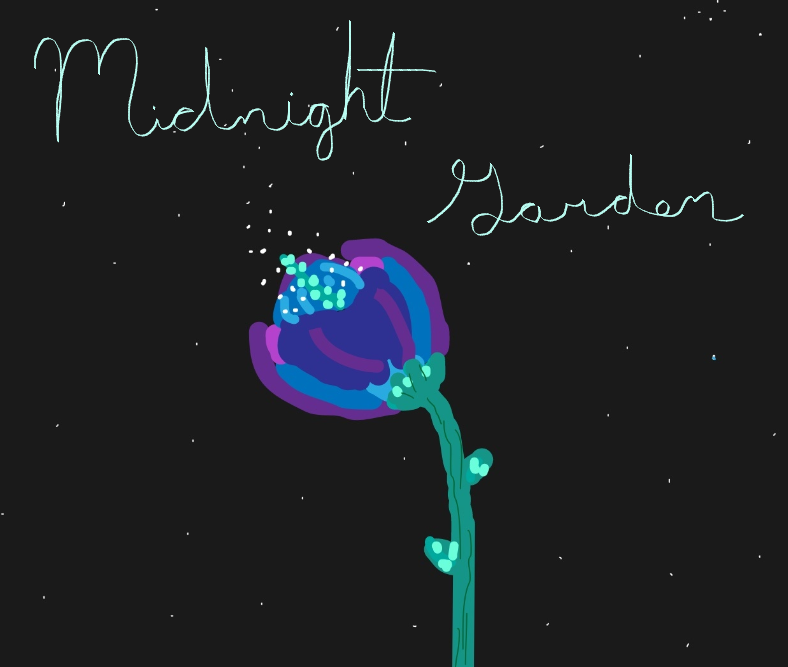 Midnight
Garden